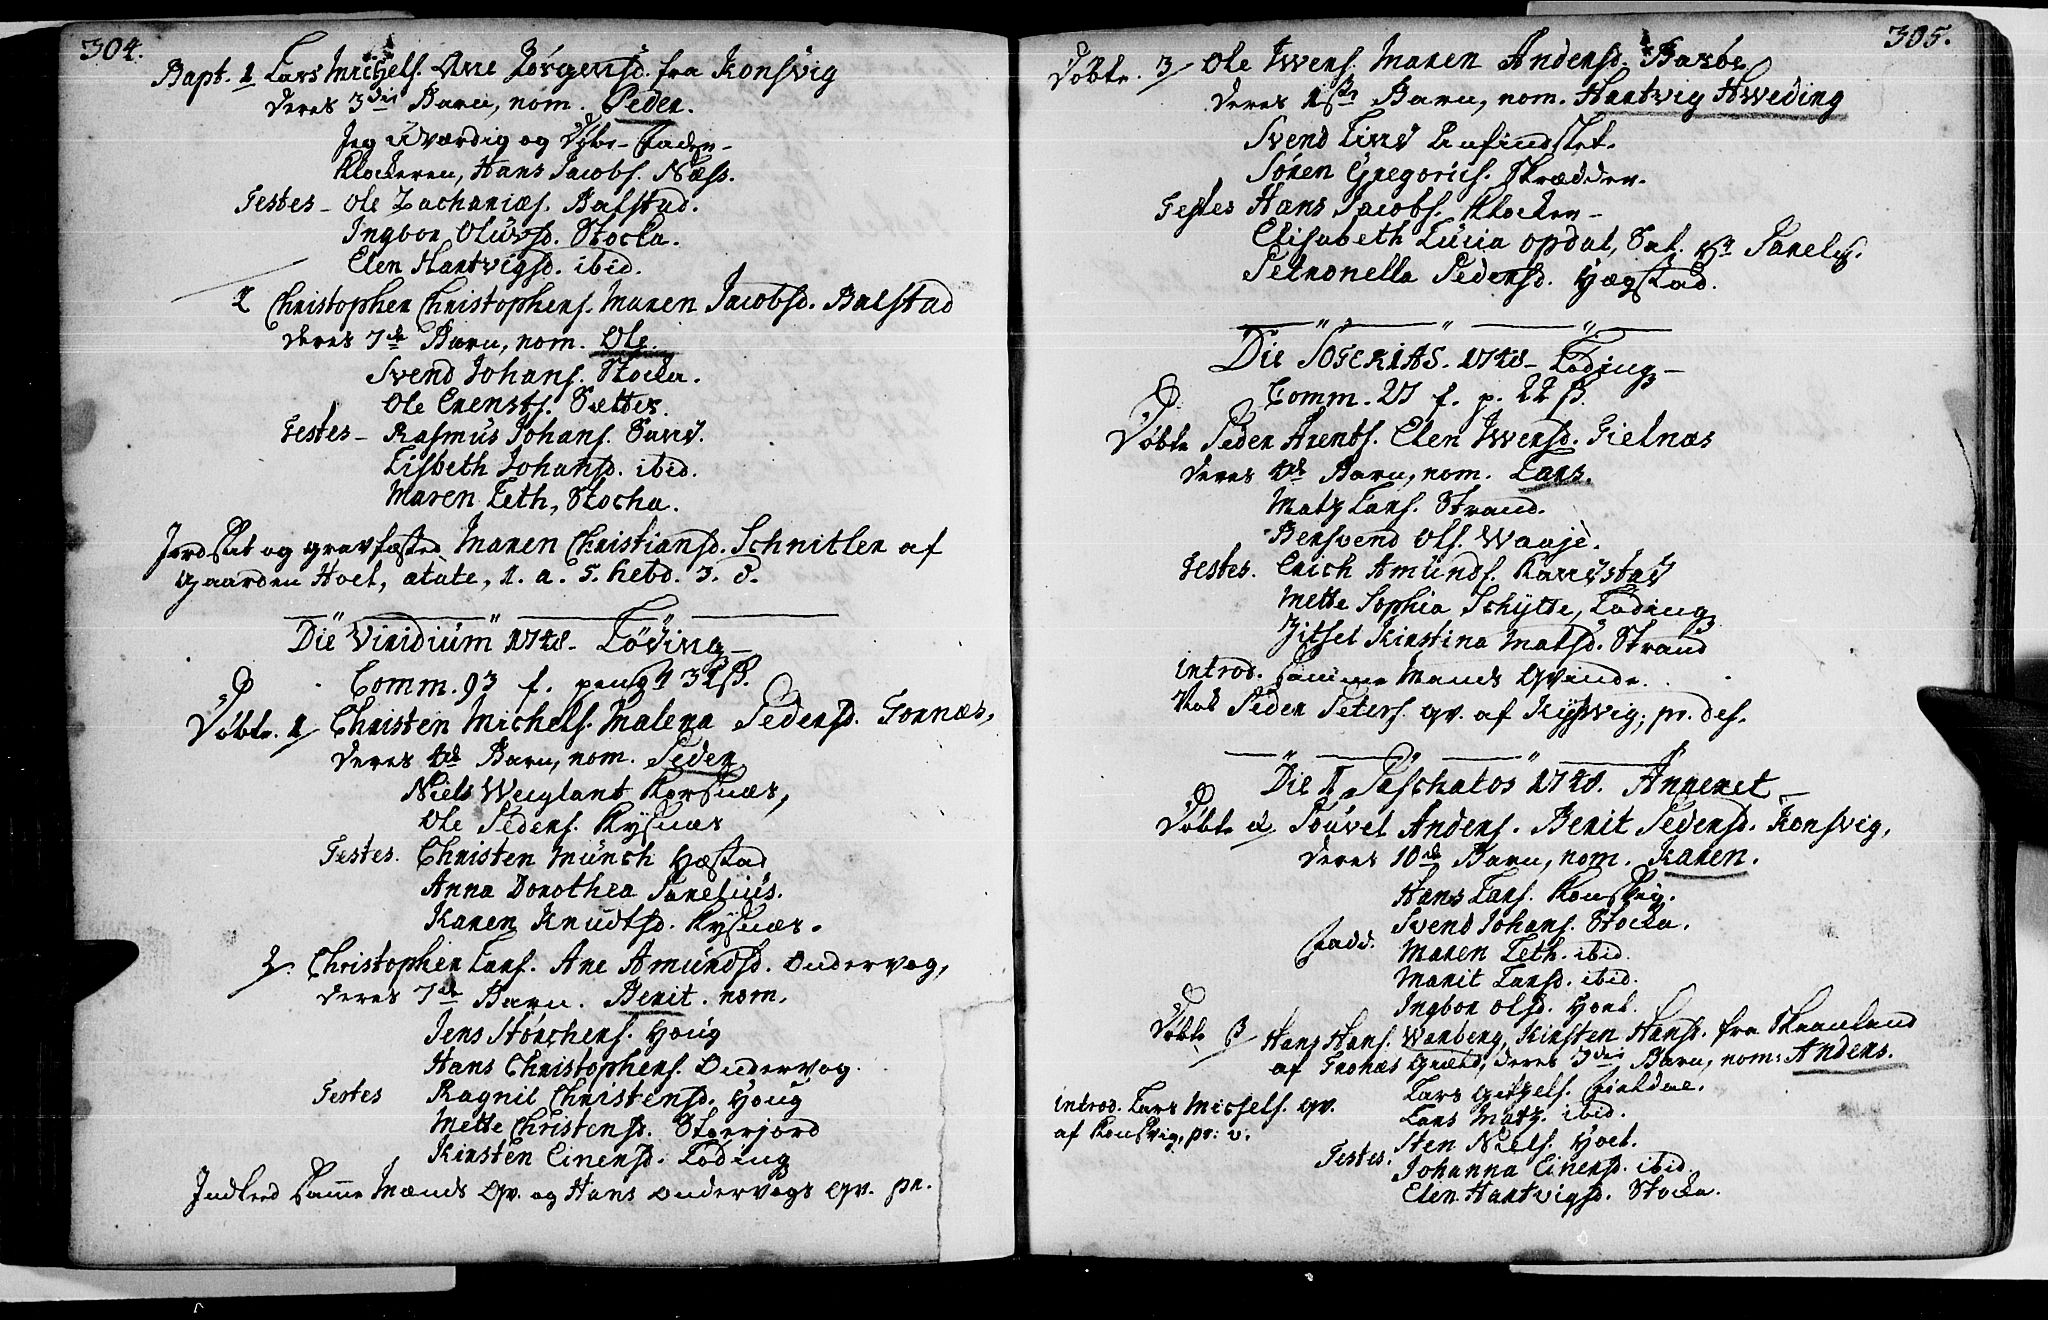 304.
Bapt. 1 Lars Michels. Ane Jörgensd. fra Konsvig
deres 3die Barn, nom. Peder.
Jeg uværdig og Döbe-Fader
Klockeren, Hans Jacobs. Næss.
Testes - Ole Zachariæs. Balstad.
Ingbor Olüvsd. Stocka.
Elen Hartvigsd. ibid.
2 Christopher Christophers. Maren Jacobsd. Balstad
deres 7de Barn, nom. Ole.
Svend Johans. Stocka.
Ole Erensts. Sætter
Testes - Rasmus Johans. Sand.
Lisbeth Johansd. ibid.
Maren Leth, Stocka.
Jordsat og gravfæsted Maren Christiansd. Schnitler af
gaarden Hoel, ætate, 1. a. 5. hebd. 3. d.
Die Viridium 1748. Löding
Comm. 93 f. peng 4 3 1 ß.
Döbte. 1/ Christen Michels. Malena Pedersd. Fornæs,
deres 4de Barn, nom. Peder
Niels Weiglant Korsnæs,
Ole Peders. Rysnæs
Testes. Christen Münch Hæstad
Anna Dorothea Parelius.
Karen Knudtsd. Rysnæs.
2. Christopher Lars. Ane Amundsd. Ondervog,
deres 7de Barn. Berit. nom.
Jens Störchers. Houg
Hans Christophers. Ondervog.
Testes Ragnil Christensd. Houg
Mette Christensd. Storjord
Kirsten Einersd. Löding
Indleed samme Mænds Qv. og Hans Ondervogs Qv. pr.
305.
Döbte. 3/ Ole Iwers. Maren Andersd. Barøe
deres 1ste Barn, nom. Hartvig Hweding
Svend Lind
Sören Gregoriis. Skrædder.
Testes Hans Jacobs. Klocker
Elisabeth Lucia Opdal, Parelij.
Petronella Pedersd. Hægstad.
Die 1748 - Löding
Comm. 27 f. p. 22 ß.
Döbte Peder Arents. Elen Iwersd. Fielnæs
deres 4de Barn, nom. Lars.
Matz Lars. Strand.
Bersvend Ols. Waaje.
Testes. Erich Amunds. Kanstad
Mette Sophia Schytte, Löding
Zitsel Kirstina Matsd. Strand
introd. samme Mands Qvinde.
Peder Peters. qv. af Rysvig, pr. des.
Die 1 Paschatos 1748. Anneret
Döbte a/ Pouvel Anders. Berit Pedersd. Konsvig,
deres 10de Barn, nom. Karen.
Hans Lars. Konsvig.
Svend Johans. Stocka.
Fadd. Maren Leth. ibid.
Marit Larsd. ibid.
Ingbor Olsd. Hoel.
Döbte β/ Hans Hans. Warberg, Kirsten Hansd. fra Skaanland
af Tronæs Gield, deres 3die Barn, nom: Anders.
Lars Fieldal.
introd. Lars Michels. qv.
Lars Matz. ibid.
af Konsvig, pr: v.
Sten Niels. Hoel.
Testes. Johanna Einersd. ibid.
Elen Hartvigsd. Stocka.